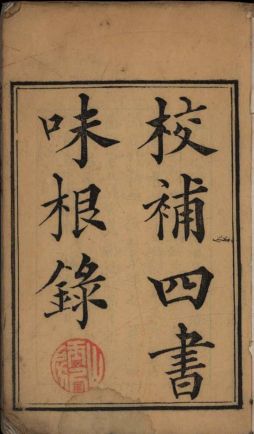 校補四書
味根錄